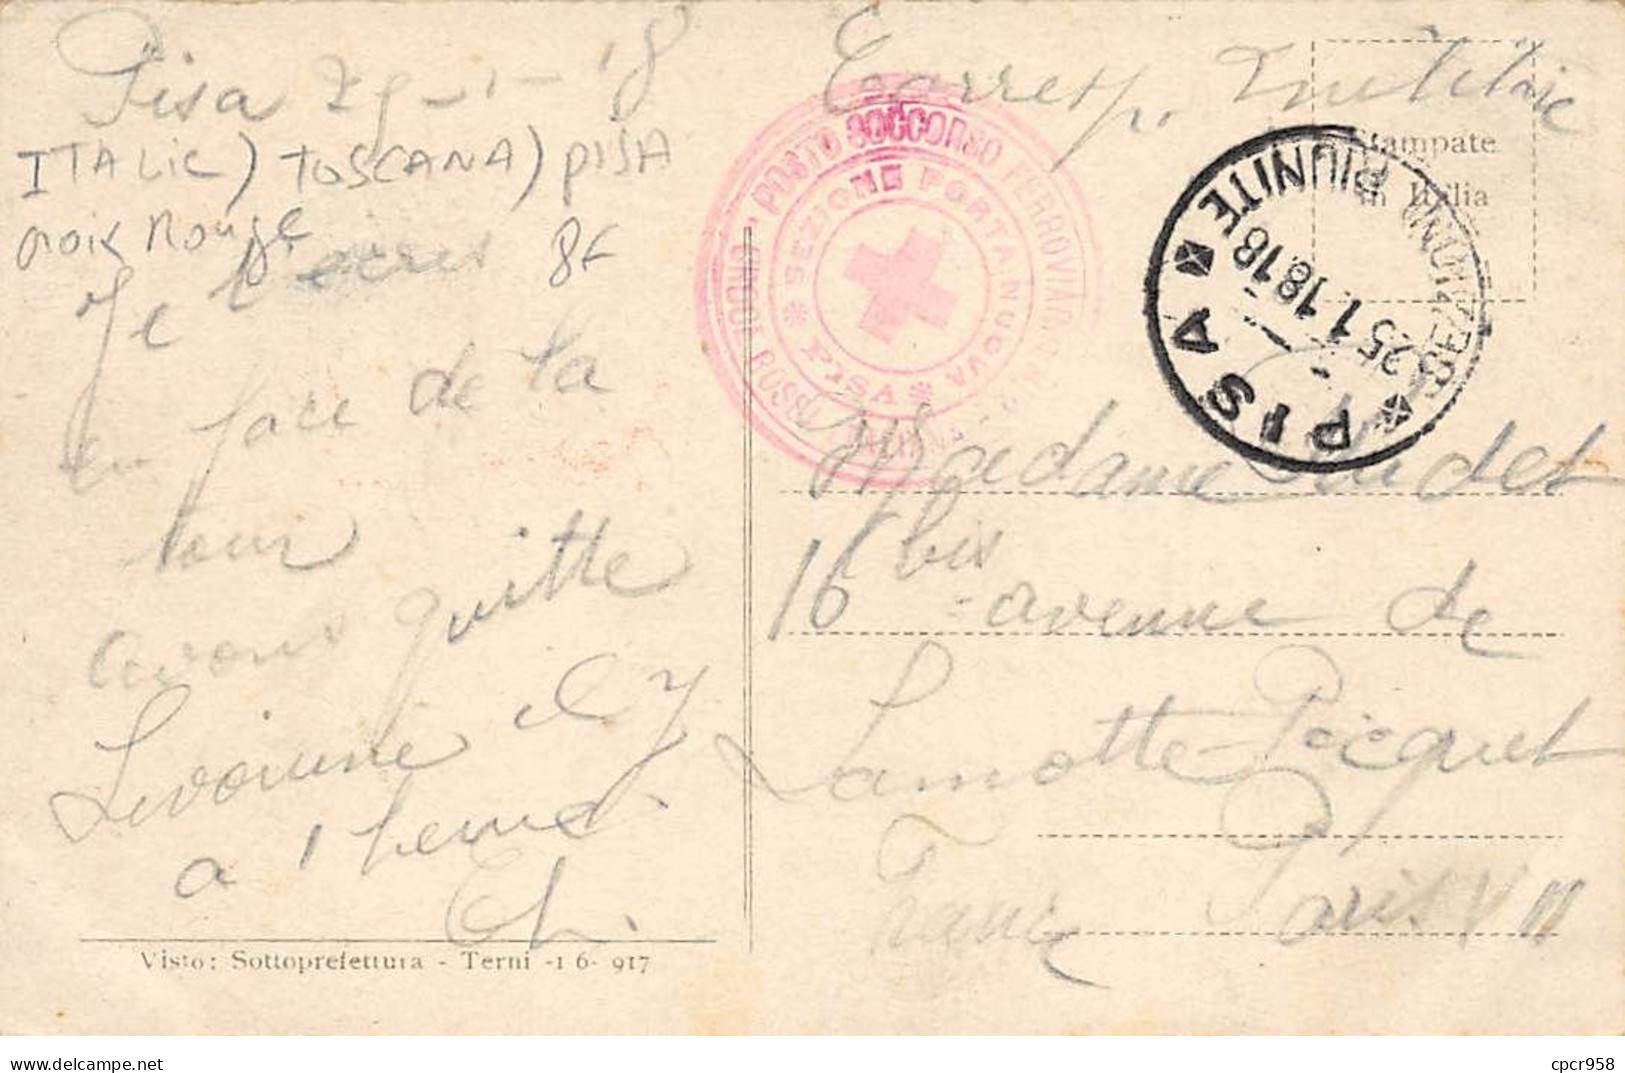 Pisa 25-1-18
ITALIE) TOSCANA) PISA
croix Rouge 8€
Je t'ecris
en face de la
tour
avons quitte
Livourne il y
a 1 heure.
Ch.
Visto: Sottoprefettura - Terni -1 6- 917
Corresp. Militaire
Stampate
in Italia
CROCE ROSSA ITALIANA POSTO SOCCORSO FERROVIARIO
SEZIONE PORTA NUOVA
PISA
PISA
SEZIONI RIUNITE
25 1.18 18
Madame
16 bis avenue de
Lamotte-Picquet
Paris VII
France
cpcr958